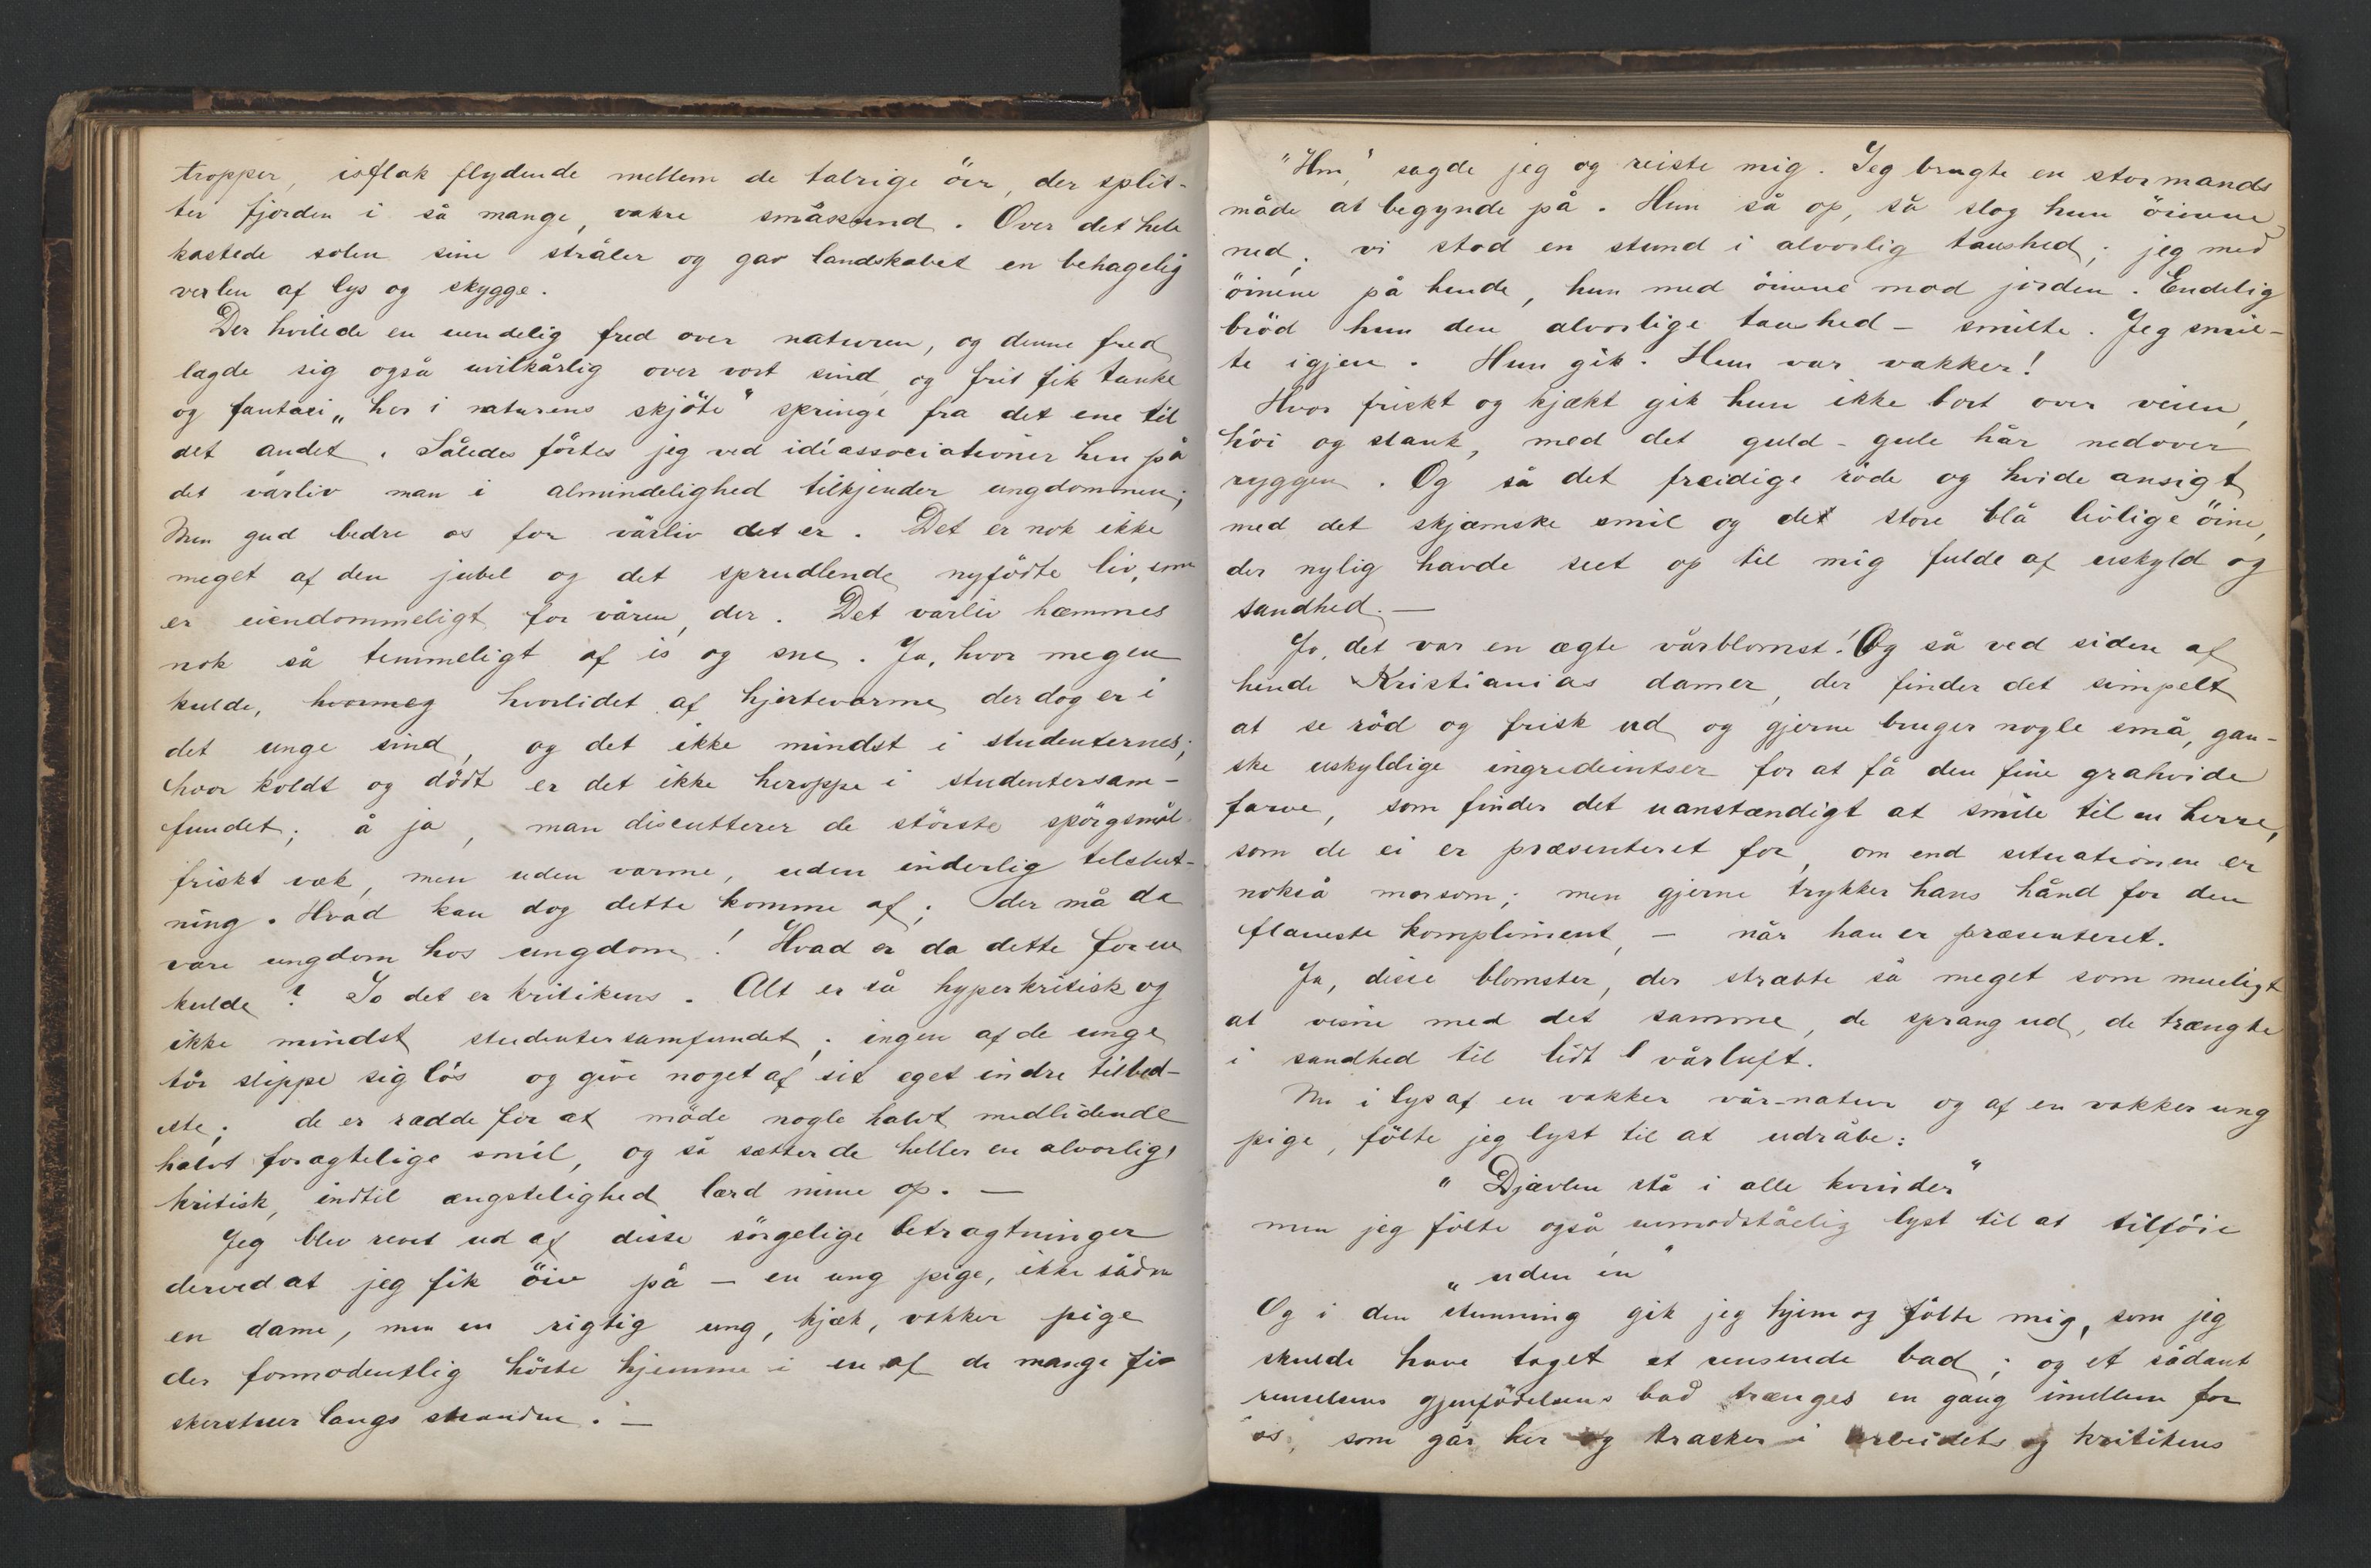 tropper, isflak flydende mellem de talrige öer, der split-
ter fjorden i så mange, vakre småsund. Over det hele
kastede solen sine stråler og gav landskabet en behagelig
verlen af lys og skygge.
Der hvilede en uendelig fred over naturen, og denne fred
lagde sig også uvilkårlig over vort sind, og frit fik tanke
og fantasi „her i naturens skjöte" springe fra det ene til
det andet. Således förtes jeg ved idéassociationer hen på
det vårliv man i almindelighed tilkjender ungdommen;
Men gud bedre os for vårliv det er. Det er nok ikke
meget af den jubel og det sprudlende nyfödte liv, som
er eiendommeligt for våren, der. Det vårliv hæmmes
nok så temmeligt af is og sne. Ja, hvor megen
kulde, hvormeg hvorlidet af hjertevarme der dog er i
det unge sind, og det ikke mindst i studenternes;
hvor koldt og dödt er det ikke heroppe i studentersam-
fundet; å ja, man discutterer de störste spörgsmål
friskt væk, men uden varme, uden inderlig tilslut-
ning. Hvad kan dog dette komme af; der må da
være ungdom hos ungdom! Hvad er da dette for en
kulde? Jo det er kritikens. Alt er så hyperkritisk og
ikke mindst studentersamfundet; ingen af de unge
tör slippe sig lös og give noget af sit eget indre tilbed-
ste; de er rædde for at möde nogle halvt medlidende
halvt foragtelige smil, og så sætter de heller en alvorlig,
kritisk, indtil ængstelighed lærd mine op. —
Jeg blev revet ud af disse sörgelige betragtninger
derved at jeg fik öie på — en ung pige, ikke sådn
en dame, men en rigtig ung, kjæk, vakker pige
der formodentlig hörte hjemme i en af de mange fi-
skerstuer langs stranden. —
"Hm," sagde jeg og reiste mig. Jeg brugte en stormands
måde at begynde på. Hun så op, så slog hun öinene
ned; vi stod en stund i alvorlig taushed; jeg med
öinene på hende, hun med öinene mod jorden. Endelig
bröd hun den alvorlige taushed — smilte. Jeg smil-
te igjen. Hun gik. Hun var vakker!
Hvor friskt og kjækt gik hun ikke bort over veien,
höi og slank, med det guld-gule hår nedover
ryggen. Og så det freidige röde og hvide ansigt
med det skjæmske smil og det store blå livlige öine,
der nylig havde seet op til mig fulde af uskyld og
sandhed. —
Jo, det var en ægte vårblomst! Og så ved siden af
hende Kristianias damer, der finder det simpelt
at se röd og frisk ud og gjerne bruger nogle små, gan-
ske uskyldige ingredeintser for at få den fine gråhvide
farve, som finder det uanstændigt at smile til en herre,
som de ei er præsenteret for, om end situationen er
nokså morsom; men gjerne trykker hans hånd for den
flaueste kompliment, — når han er præsenteret.
Ja, disse blomster, der stræbte så meget som mueligt
at visne med det samme, de sprang ud, de trængte
i sandhed til lidt l vårluft.
Nu i lys af en vakker vår-natur og af en vakker ung
pige, fölte jeg lyst til at udråbe:
" Djævlen stå i alle kvinder"
men jeg fölte også uimodståelig lyst til at tilföie
„ uden én "
Og i den stemning gik jeg hjem og fölte mig, som jeg
skulde have taget et rensende bad; og et sådant
renselsens gjenfödelsens bad trænges en gang imellem for
os, som går her og trasker i arbeidets og kritikens